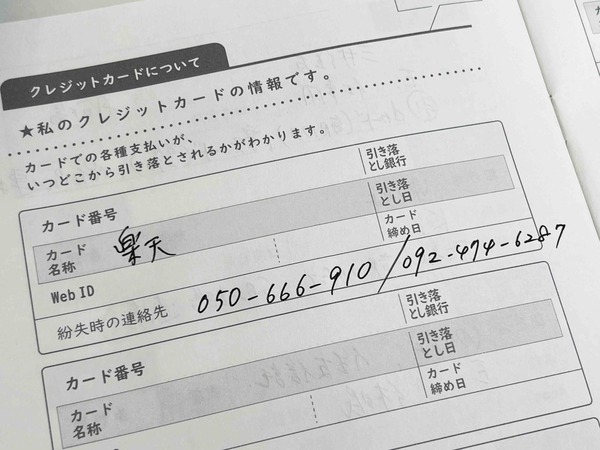 クレジットカードについて
★私のクレジットカードの情報です。
カードでの各種支払いが、
いつどこから引き落とされるかがわかります。
カード番号
引き落
とし銀行
カード
名称
楽天
引き落
とし日
Web ID
カード
締め日
紛失時の連絡先
050-666-910/092-474-6287
カード番号
引き落
とし銀行
カード
名称
引き落
とし日
カード
締め日